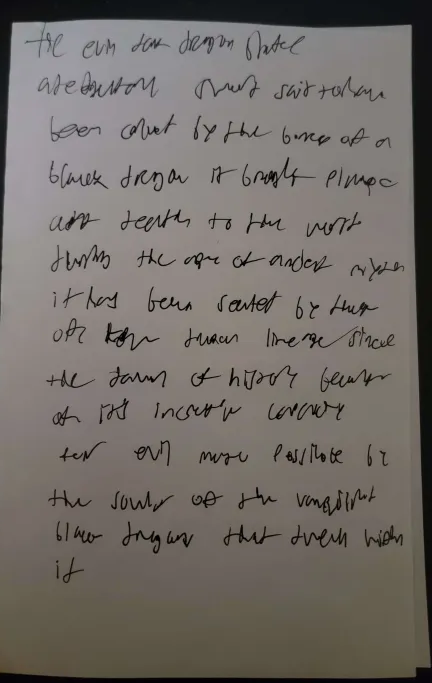 the evil dark dragon
said to have
been  by the bones of a
black dragon it brought plague
and death to the world
during the age of ancient
it has been sealed by those
of human lineage since
the dawn of history because
of its incredible capacity
for evil made possible by
the souls of the vanquished
black dragons that dwell within
it